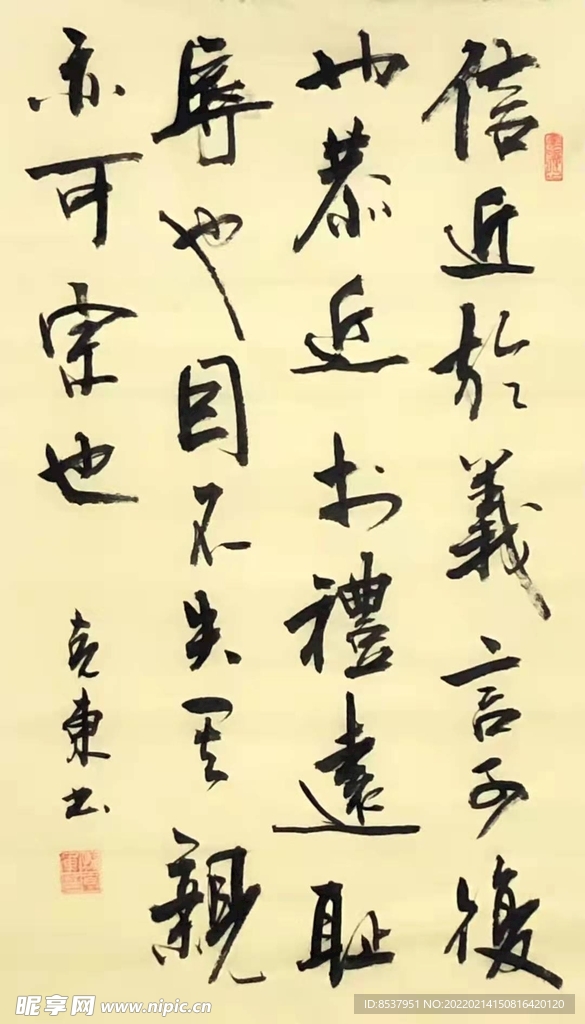 信近於義言可復
也恭近於禮遠恥
辱也因不失其親
亦可宗也
克東书
昵享网 www.nipic.cn
ID:8537951 NO:20220214150816420120